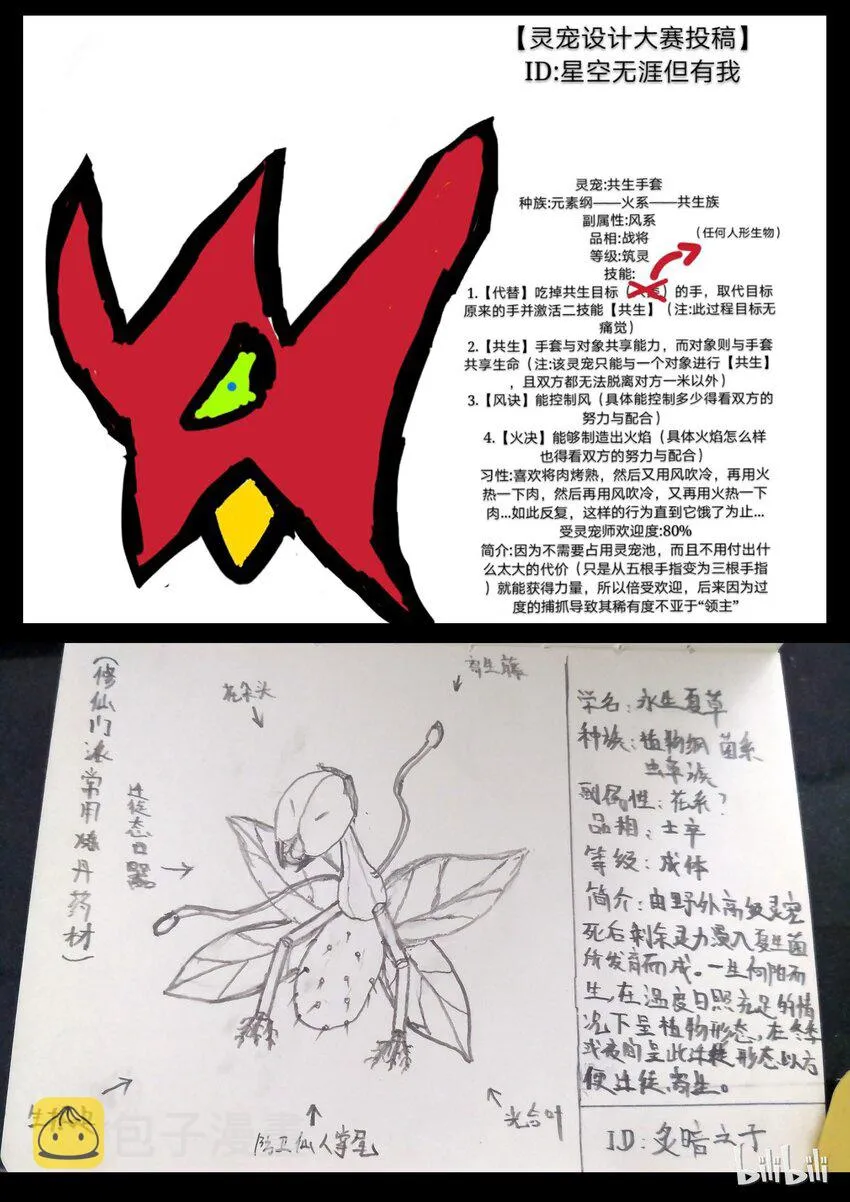 【灵宠设计大赛投稿】
ID:星空无涯但有我
灵宠:共生手套
种族:元素纲——火系——共生族
副属性:风系
品相:战将
(任何人形生物)
等级:筑灵
技能:
1.【代替】吃掉共生目标( )的手，取代目标
原来的手并激活二技能【共生】(注:此过程目标无
痛觉)
2.【共生】手套与对象共享能力，而对象则与手套
共享生命(注:该灵宠只能与一个对象进行【共生】
，且双方都无法脱离对方一米以外)
3.【风诀】能控制风(具体能控制多少得看双方的
努力与配合)
4.【火决】能够制造出火焰(具体火焰怎么样
也得看双方的努力与配合)
习性:喜欢将肉烤熟，然后又用风吹冷，再用火
热一下肉，然后再用风吹冷，又再用火热一下
肉...如此反复，这样的行为直到它饿了为止...
受灵宠师欢迎度:80%
简介:因为不需要占用灵宠池，而且不用付出什
么太大的代价(只是从五根手指变为三根手指
)就能获得力量，所以倍受欢迎，后来因为过
度的捕抓导致其稀有度不亚于“领主”
(修仙门派常用炼丹药材)
花朵头
寄生藤
迁徙态口器
光合叶
学名:永生夏草
种族:植物纲 菌系
虫草族
副属性:花系?
品相:士卒
等级:成体
简介:由野外高级灵宠
死后剩余灵力浸入夏生菌
所发育而成。一生向阳而
生,在温度日照充足的情
况下呈植物形态,在冬季
或夜间呈此迁徙形态以方
便迁徙,寄生。
ID:炙暗之子
包子漫畫
bilibili